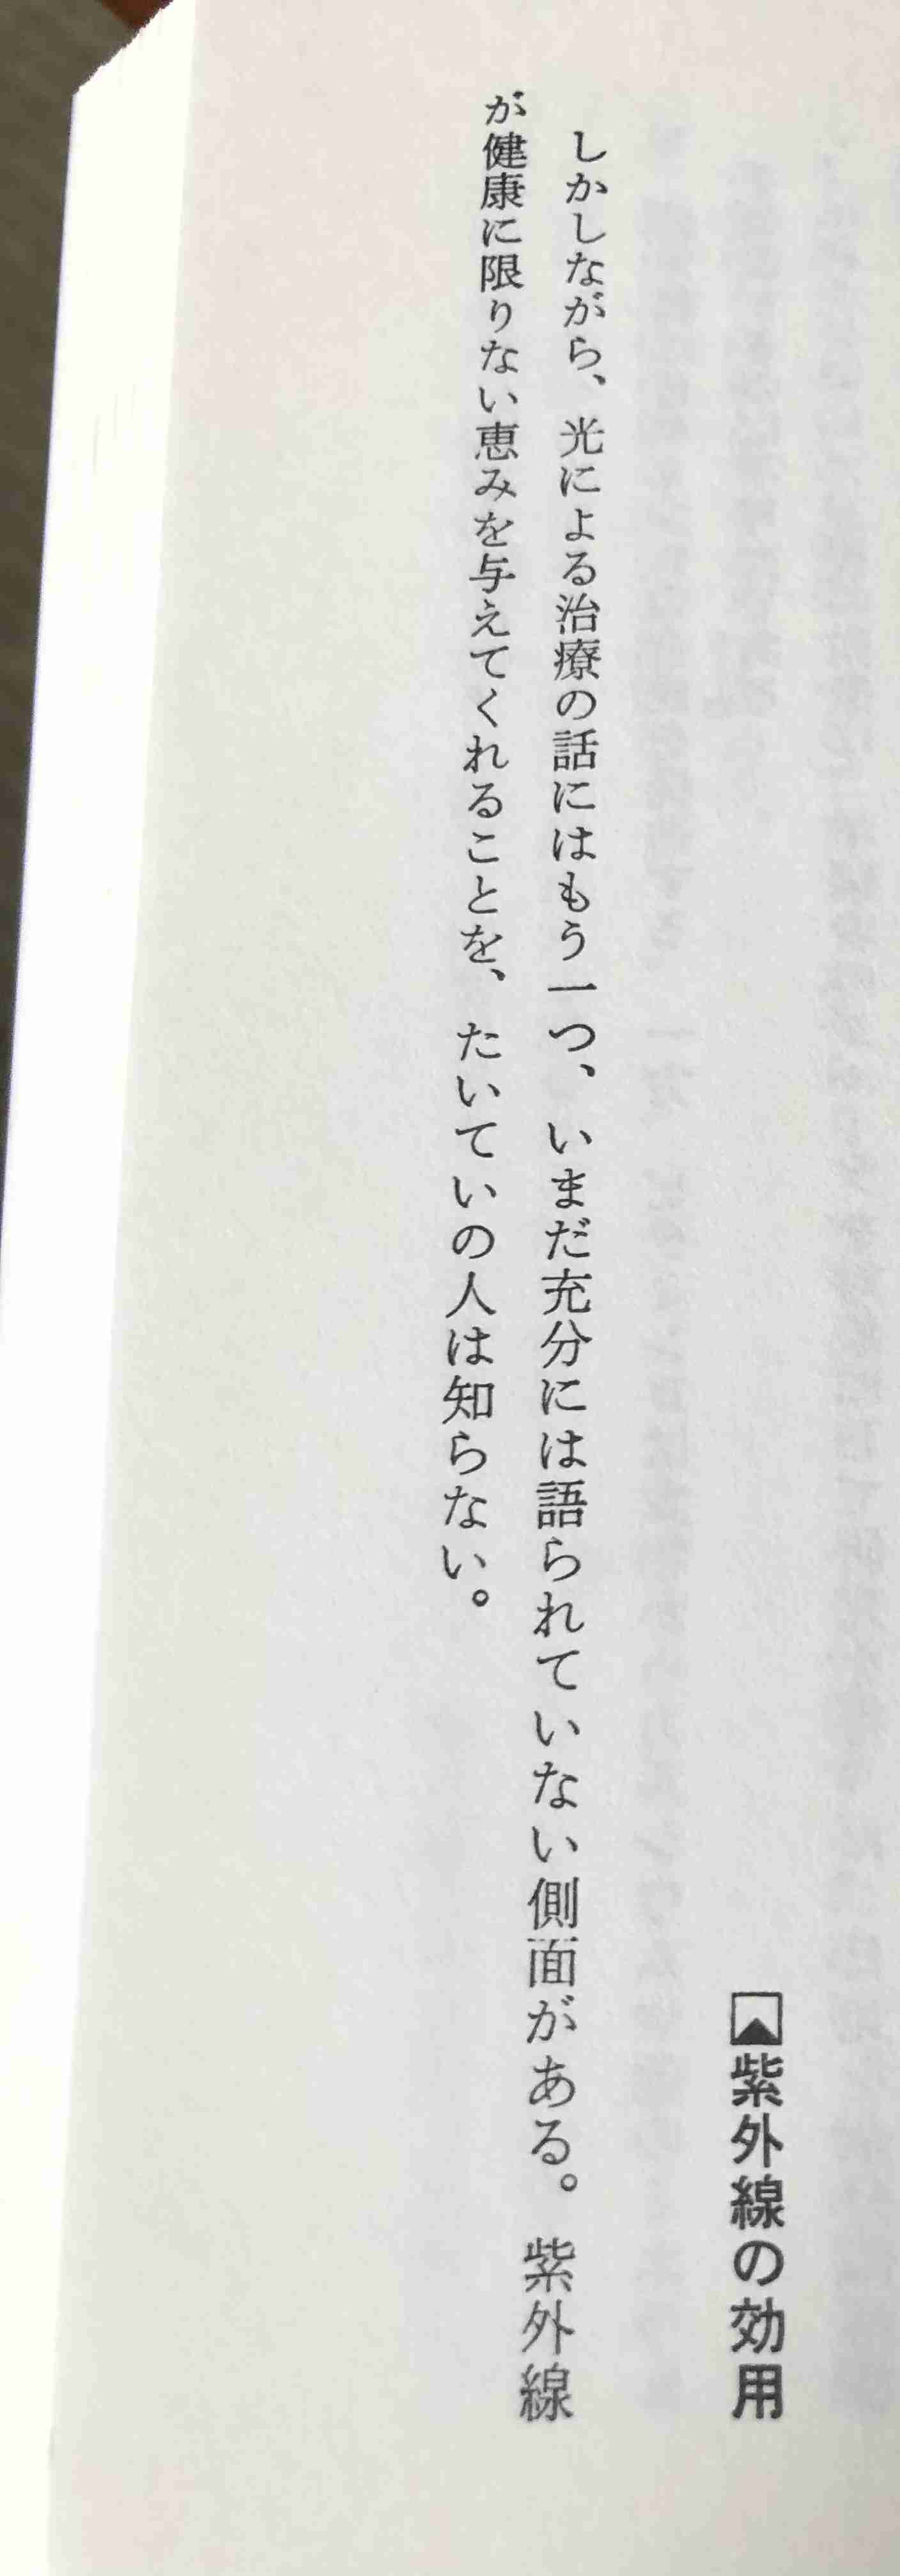 紫外線の効用
しかしながら、光による治療の話にはもう一つ、いまだ充分には語られていない側面がある。紫外線
が健康に限りない恵みを与えてくれることを、たいていの人は知らない。